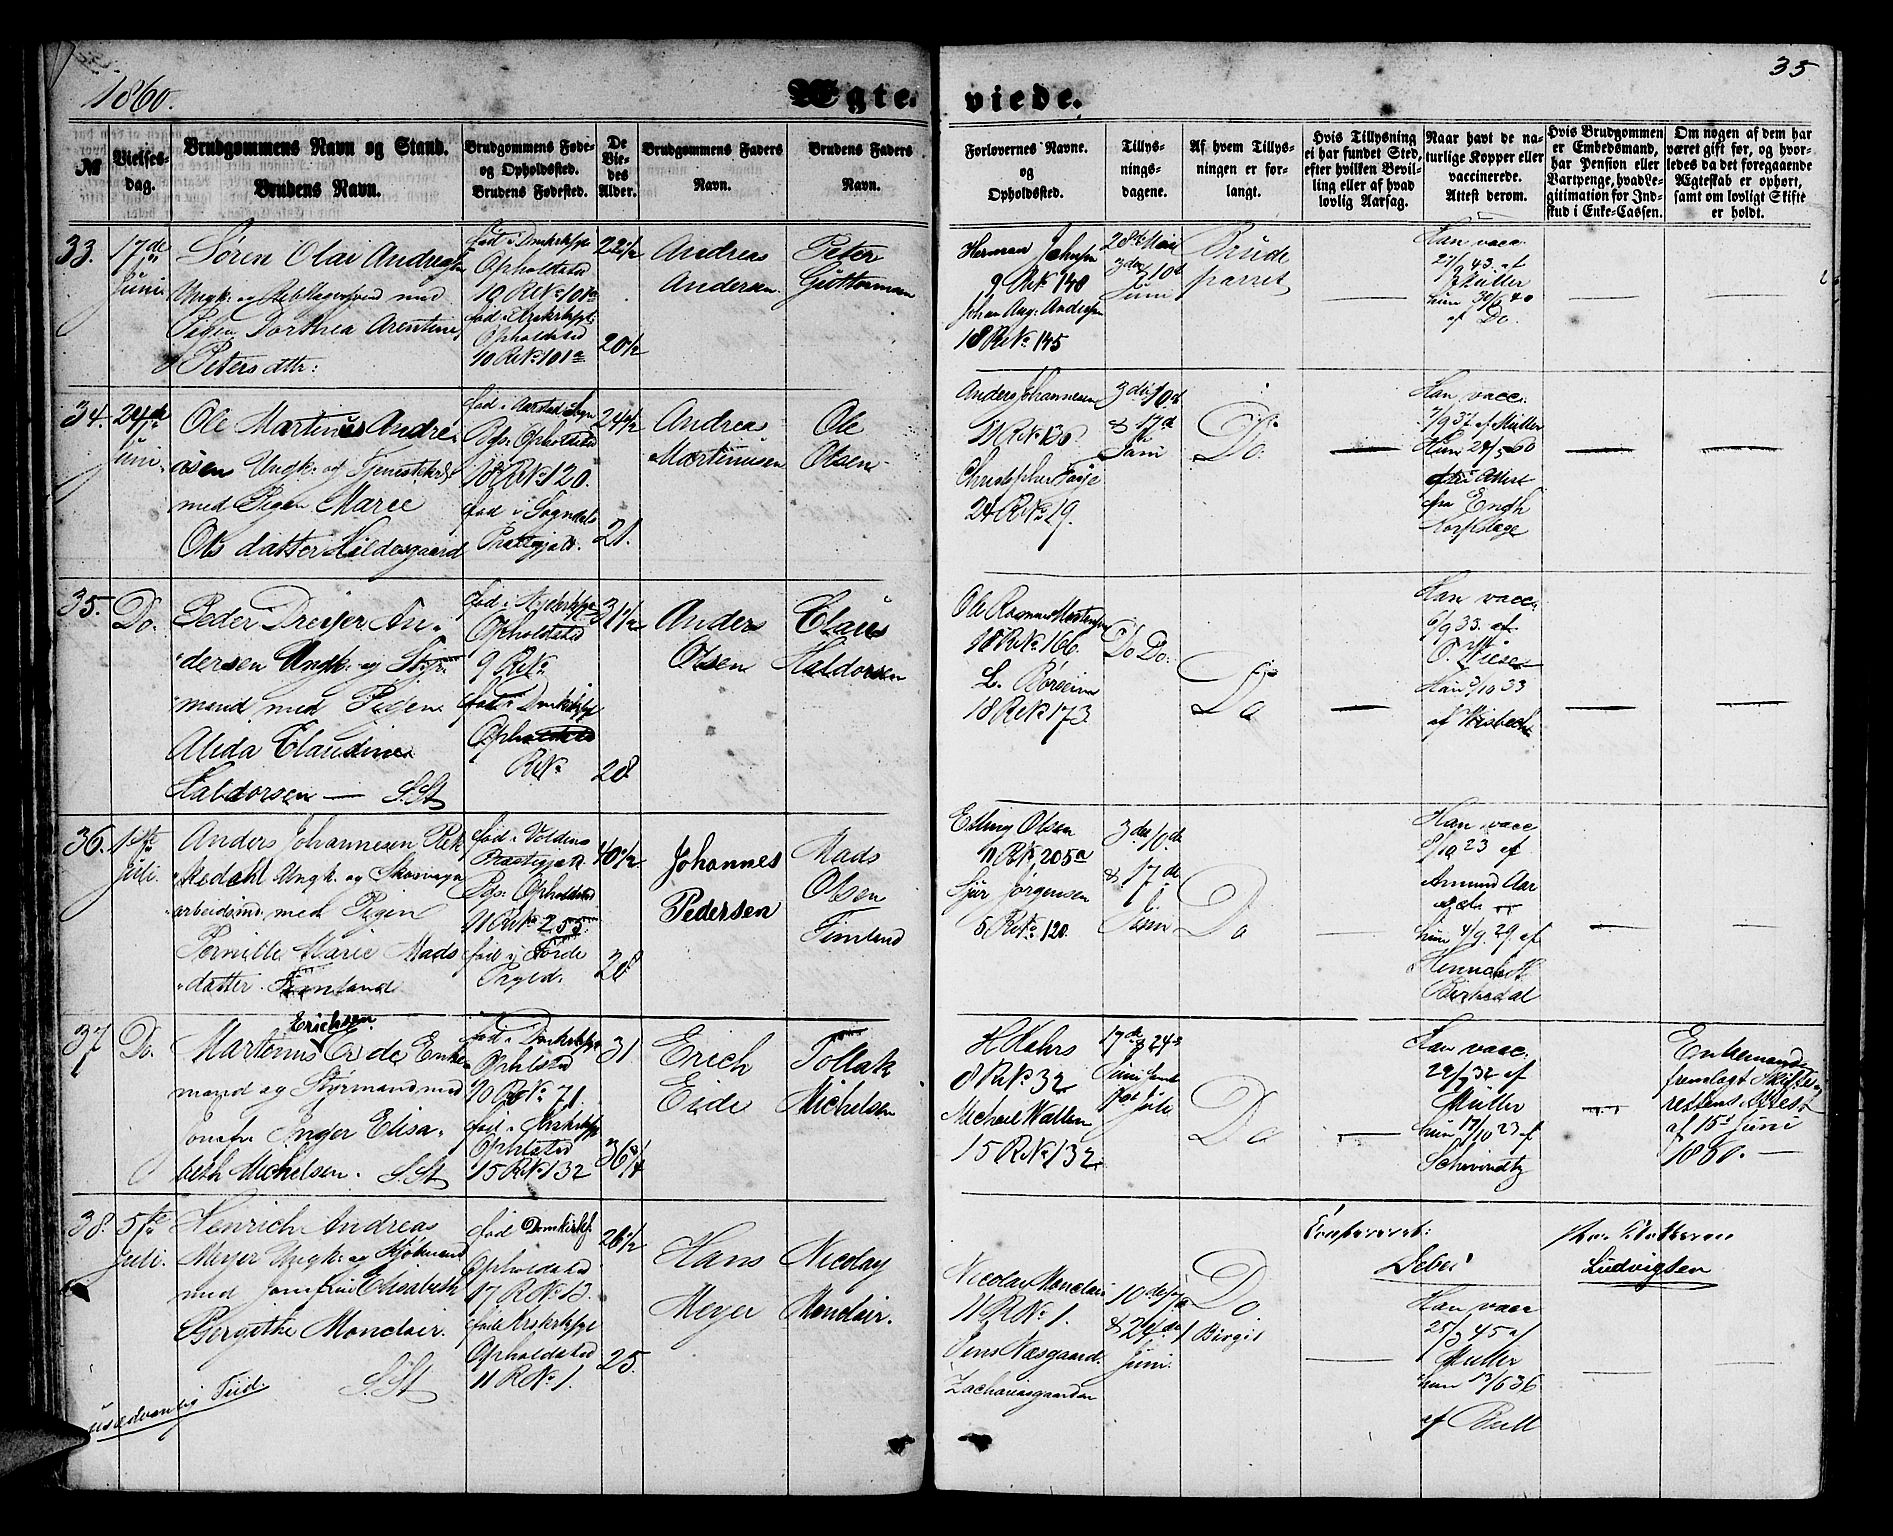 1860.
Ægte-
viede.
35
№
Vielses-
dag.
Brudgommens Navn og Stand.
Brudens Navn.
Brudgommens Føde-
og Opholdssted.
Brudens Fødested.
De
Vie-
des
Alder.
Brudgommens Faders
Navn.
Brudens Faders
Navn.
Forlovernes Navne.
og
Opholdssted.
Tillys-
nings-
dagene.
Af hvem Tillys-
ningen er for-
langt.
Hvis Tillysning
ei har fundet Sted,
efter hvilken Bevil-
ling eller af hvad
lovlig Aarsag.
Naar havt de na-
turlige Kopper eller
vaccinerede.
Attest derom.
Hvis Brudgommen
er Embedsmand,
har Pension eller
Vartpenge, hvad Le-
gitimation for Ind-
skud i Enke-Cassen.
Om nogen af dem har
været gift før, og hvor-
ledes da det foregaaende
Ægteskab er ophørt,
samt om lovligt Skifte
er holdt.
33.
17de
Juni
Søren Olai Andreas
Ungk. og Reb
med
Pigen Dorthea Arentine
Petersdttr:
fød i Domkirkespr
Opholdssted
19 R. No 101a
Opholdssted
10 R. No 101a
22 1/2
20 1/2
Andreas
Andersen
Peter
Herman
9 R. No 140
Johan Aug. Andersen
18 R. No 145
28de Mai
3de & 10de
Juni
Brude
parret
Han vacc.
43. af
Müller
hun 40
af Do.
34.
24de
Juni.
Ole Martinus Andre-
asen Ungk. og Tjenestekarl
med Pigen Marie
Ols datter Hildesgaard
fød i Aarstad Sogn
Opholdssted
18 R. No 120.
fød i Sogndals
Præstegjæld.
24 1/2
21.
Andreas
Martinusen
Ole
Olsen
Anders Johannesen
R. No 136
Christopher
24 R. No 19.
3de 10de
& 17de
Juni
Do.
Han vacc.
7/9 37 af Müller
Hun 24/5 60
Attest
fra Engh
35.
Do.
Peder Dreyer An-
dersen Ungk. og Styr-
mand med Pigen
Alida Claudine
Haldorsen — S.St
fød i Nykirkespr
Opholdssted
9 R. No
fød i Domkirkespr
R. No
31 1/2
28.
Anders
Olsen
Claus
Haldorsen
Ole Rasmus Mortensen
18 R. No 166.
L.
18 R. No 173.
Do Do.
Do
Han vacc.
6/9 33. af
O. Wiese
Hun 5/10 33
af Wisbech
36.
1ste
Juli.
Anders Johannesen
Ungk. og
arbeidsmd. med Pigen
Pernille Marie Mads
datter Timland
fød i Voldens
Præstegjæld.
Opholdssted
11 R. No 255.
fød i Førde
Prgld.
40 1/2
28
Johannes
Pedersen
Mads
Olsen
Timland
Erling Olsen
11 R. No 205a
Sjur Jørgensen
5 R. No 120.
3de 10de
& 17de
Juni
Do
Han vacc
9/10 23 af
Amund Aar
hun 4/9. 29. af
Birkedal
37
Do.
Erichsen
Martinus Eide Enke-
mand og Styrmand med
Jomfru Inger Elisa-
beth Michelsen. S.St
fød i Domkirkespr
Opholdssted
20 R. No 71.
Opholdssted
15 R. No 132
31
36 1/4
Erich
Eide
Tollak
Michelsen
H Mahrs
8 R. No 32
Michael Wallem
15 R. No 132
17de & 24de
Juni samt
1ste Juli
Do
Han vacc.
22/9 32 af
Müller
hun 17/10 23 af
Schwindtz
Enkemanden
fremlagt Skifte-
rettens Attest
af 15de Juni
1860. —
38.
5te
Juli.
Henrich Andreas
Meyer Ungk. og Kjøbmand
med Jomfrue Elisabeth
Bergithe Monclair.
S.St
usædvanlig Tid.
fød Domkirkes.
Opholdssted
17 R. No 13.
Opholdssted
11 R. No 1.
26 1/2
25.
Hans
Meyer
Nicolay
Monclair.
Nicolay Monclair
11 R. No 1.
Jens Næsgaard.
Zachariasgaarden
10de 17de
& 24de
Juni.
Do
Confereret:
Debes
Ludvigsen
Han vacc
25/9 45 af
Müller
hun 13/6 36
af Bull